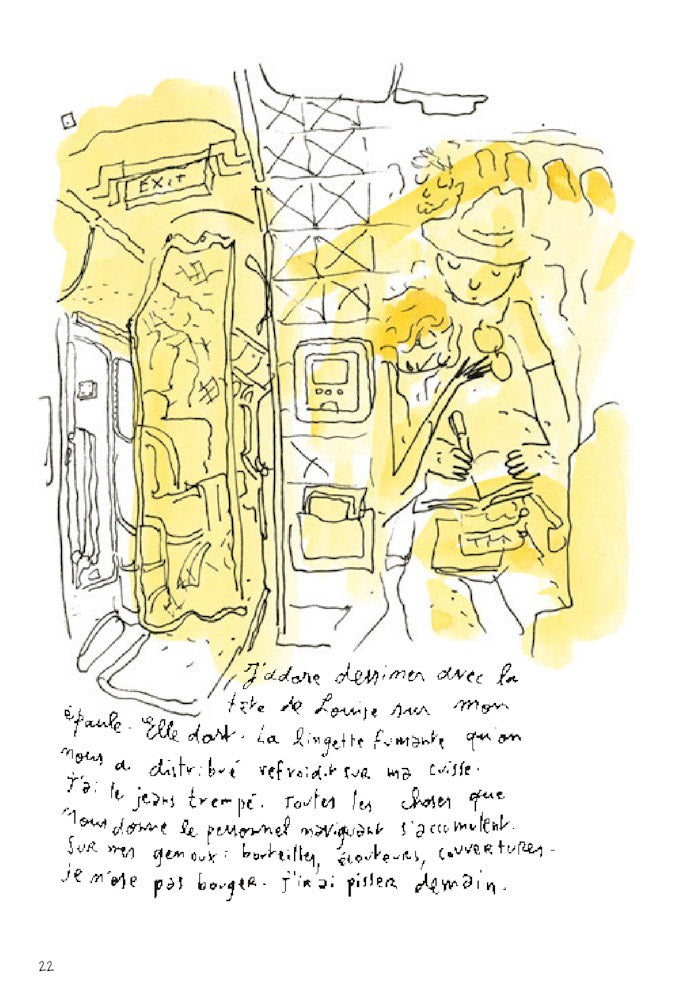 EXIT
THA
J'adore dessiner avec la
tête de Louise sur mon
épaule. Elle dort. La lingette fumante qu'on
nous a distribué refroidit sur ma cuisse.
J'ai le jeans trempé. Toutes les choses que
nous donne le personnel naviguant s'accumulent.
Sur mes genoux : bouteilles, écouteurs, couvertures.
je n'ose pas bouger. J'irai pisser demain.
22